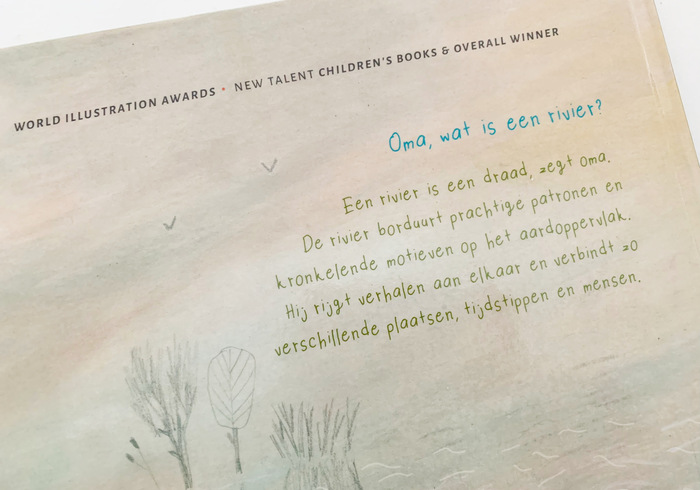 WORLD ILLUSTRATION AWARDS • NEW TALENT CHILDREN'S BOOKS & OVERALL WINNER
Oma, wat is een rivier?
Een rivier is een draad, zegt Oma.
De rivier borduurt prachtige patronen en
kronkelende motieven op het aardoppervlak.
Hij rijgt verhalen aan elkaar en verbindt zo
verschillende plaatsen, tijdstippen en mensen.